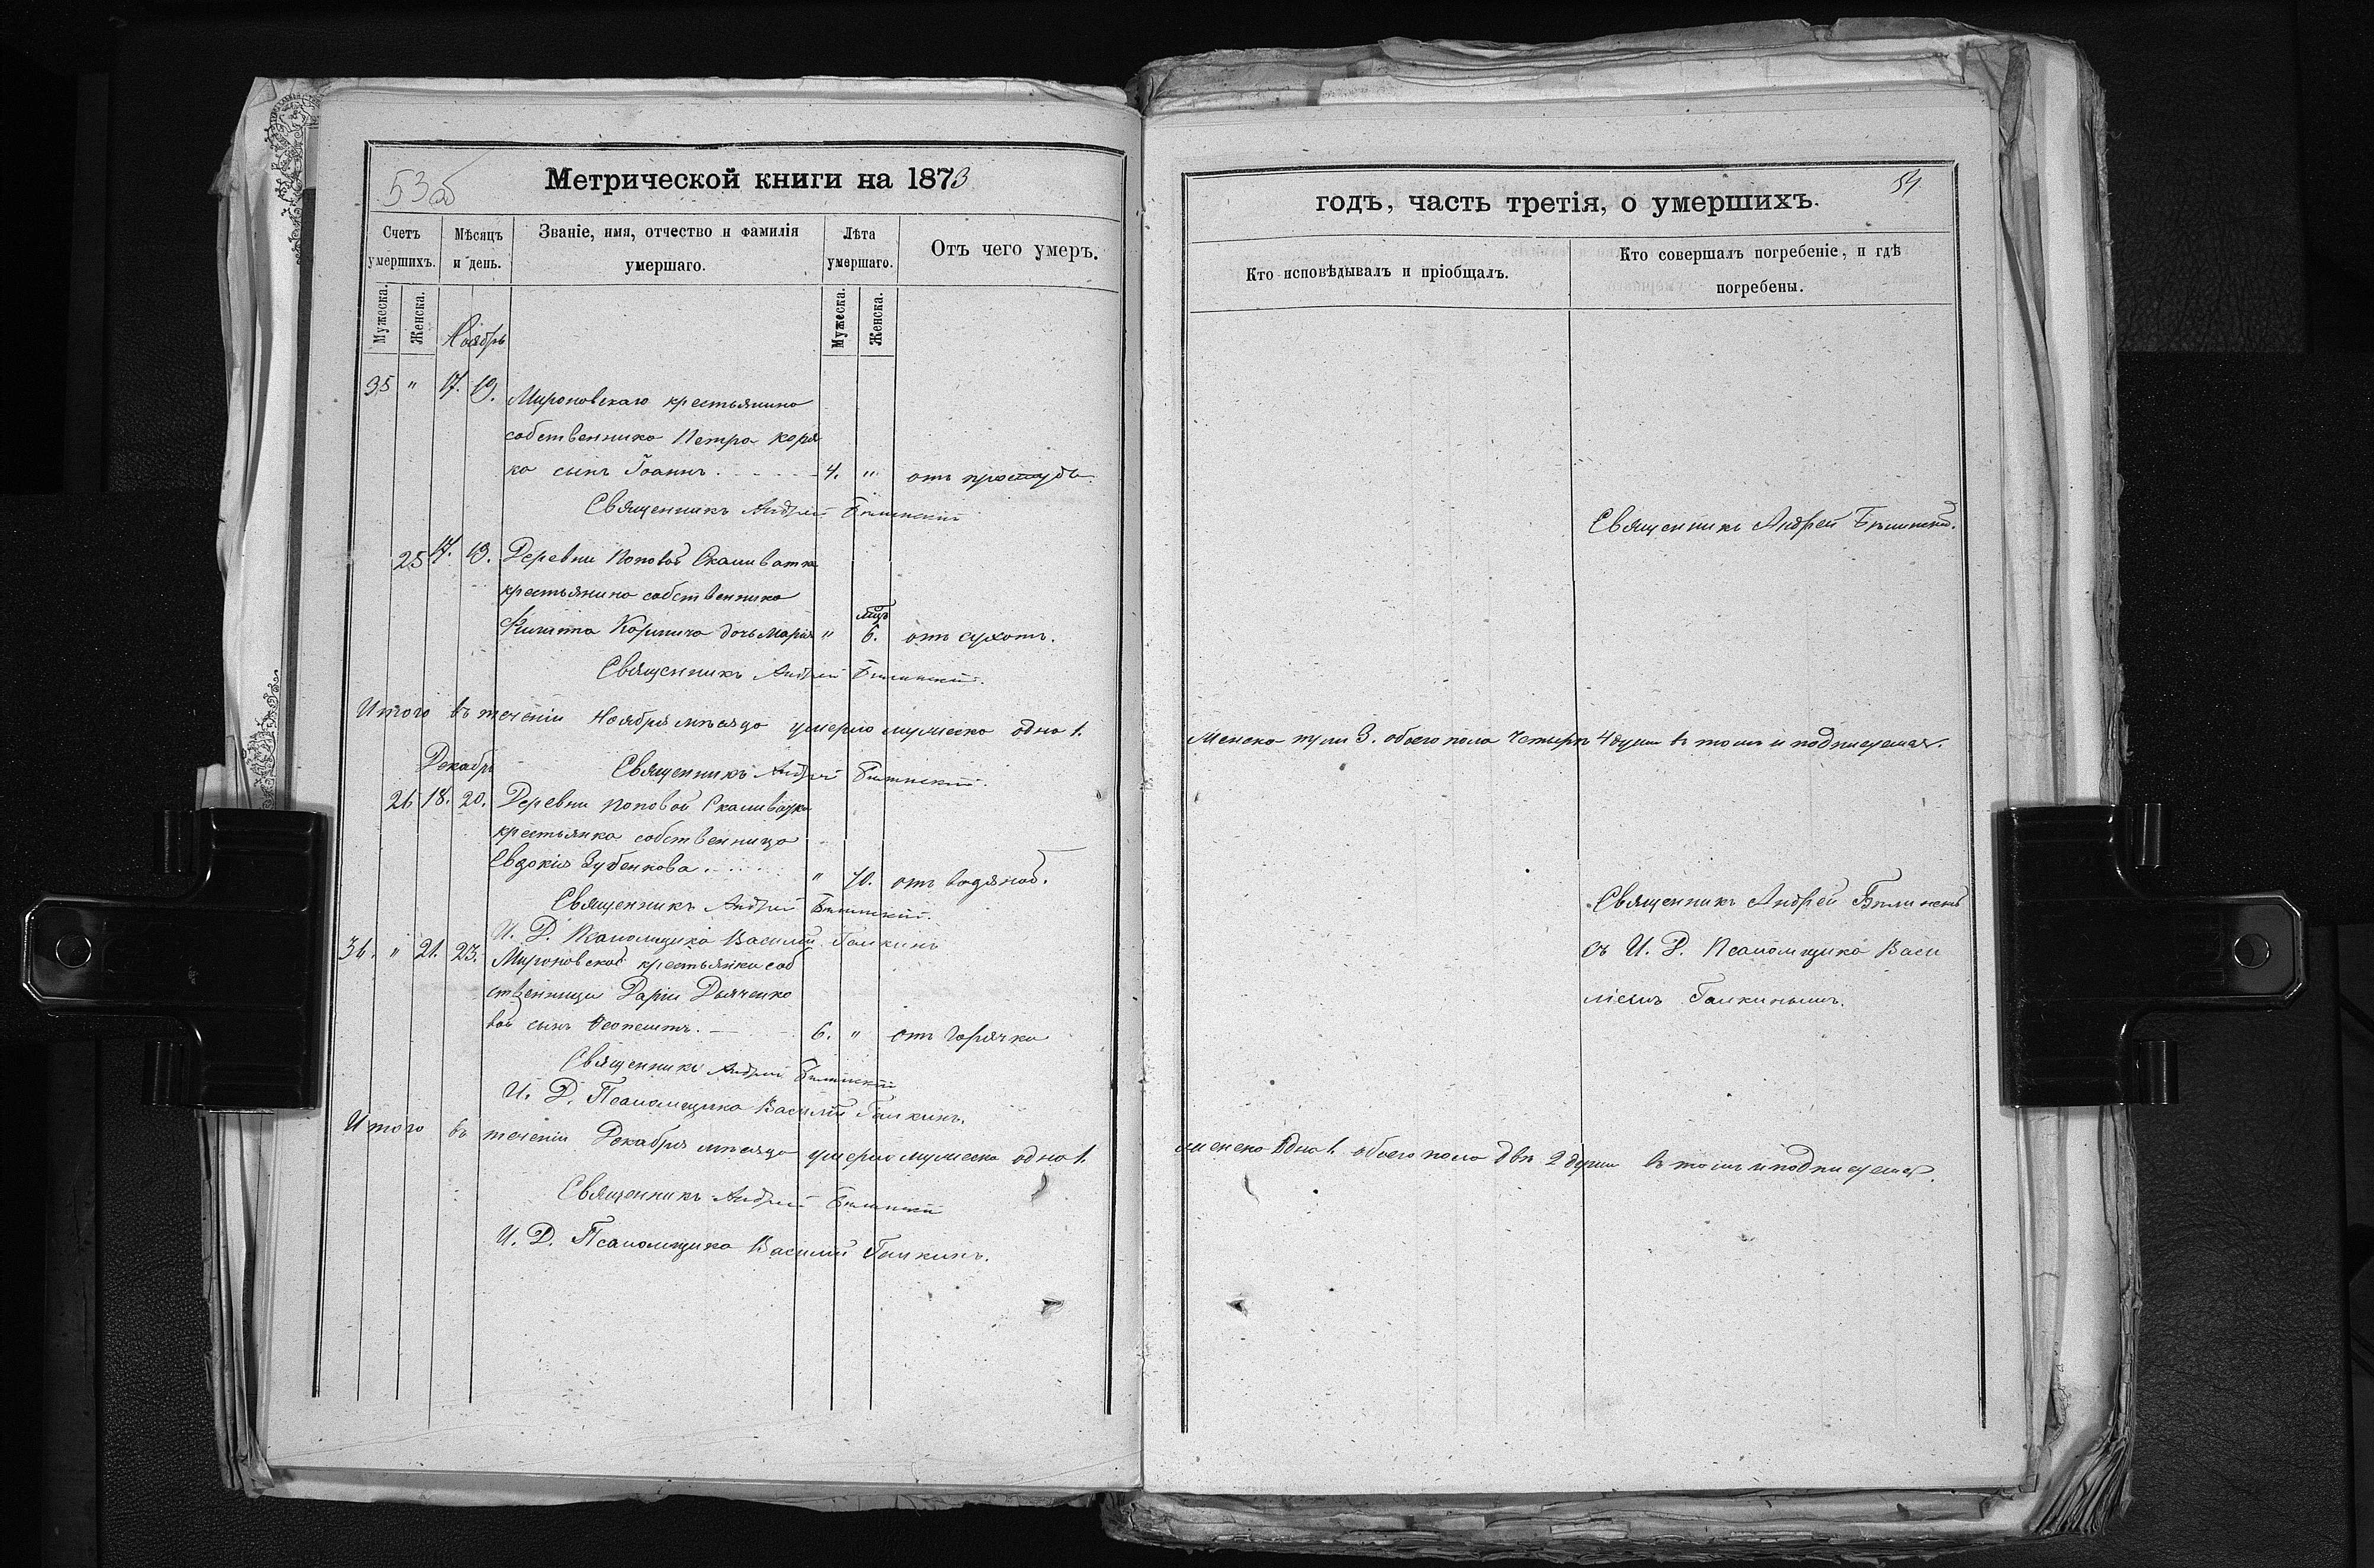 53об
Метрической книги на 1873
Счетъ умершихъ.
Мѣсяцъ и день.
Званіе, имя, отчество и фамилія умершаго.
Лѣта умершаго.
Отъ чего умеръ.
Мужеска.
Женска.
Мужеска.
Женска.
Ноябрь
35 " 17. 19. Мироновскаго крестьянина
собственника Петра Коря
ка сынъ Іоаннъ 4. " отъ простуды
Священникъ Андрей Бѣлинскій
25 17. 19. Деревни Поповой Скаливатки
крестьянина собственника
мцъ
Карпича дочь Марія " 6. отъ сухотъ.
Священникъ Андрей Бѣлинскій.
Итого въ теченіи Ноября мѣсяца умерло мужеска одна 1.
Декабрь
Священникъ Андрей Бѣлинскій.
26 18. 20. Деревни Поповой Скаливатки
крестьянка собственница
Евдокія Зубенкова " 40. отъ водяной.
Священникъ Андрей Бѣлинскій.
И. Д. Псаломщика Василій Галкинъ
36. " 21. 23. Мироновской крестьянки соб
ственницы Даріи Дьяченко
вой сынъ 6. " отъ горячки
Священникъ Андрей Бѣлинскій
И. Д. Псаломщика Василій Галкинъ.
Итого въ теченіи Декабря мѣсяца умерло мужеска одна 1.
Священникъ Андрей Бѣлинскій
И. Д. Псаломщика Василій Галкинъ.
54
годъ, часть третія, о умершихъ.
Кто исповѣдывалъ и пріобщалъ.
Кто совершалъ погребеніе, и гдѣ погребены.
Священникъ Андрей Бѣлинскій.
Женска три 3. обоего пола четыре 4 души въ томъ и подписуемся.
Священникъ Андрей Бѣлинскій
съ И. Д. Псаломщика Васи
ліемъ Галкинымъ.
женска одна 1 обоего пола двѣ 2 души въ томъ и подписуемся.